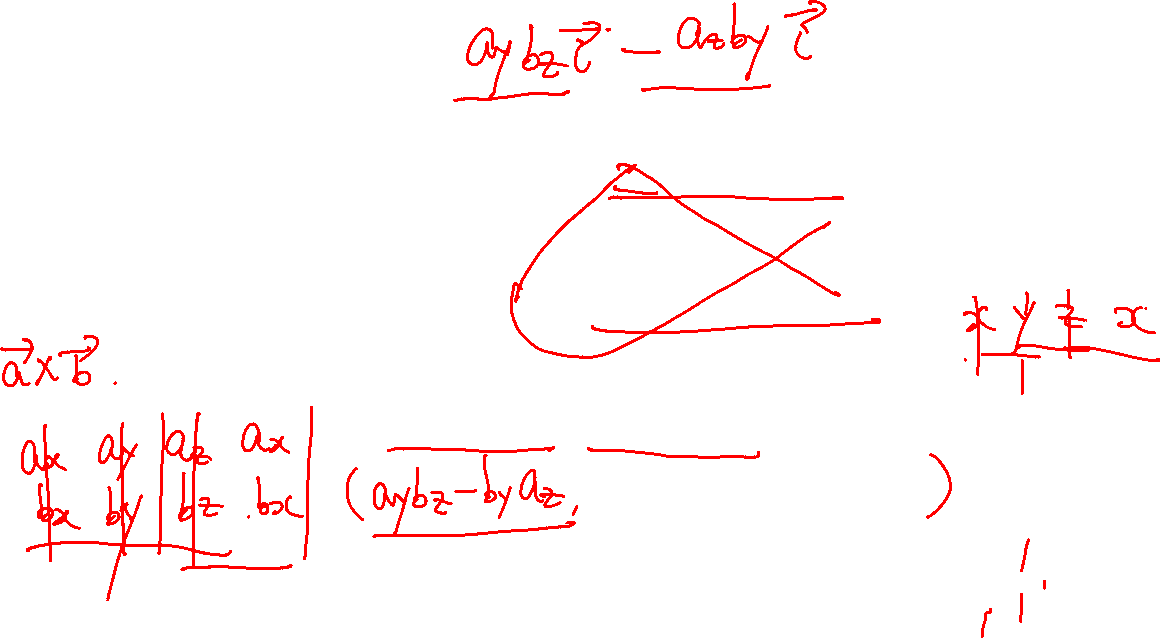 a_y b_z \vec{i} - a_z b_y \vec{i}
x y z x
\vec{a} × \vec{b} .
a_x a_y a_z a_x
b_x b_y b_z b_x ( a_y b_z - b_y a_z , )